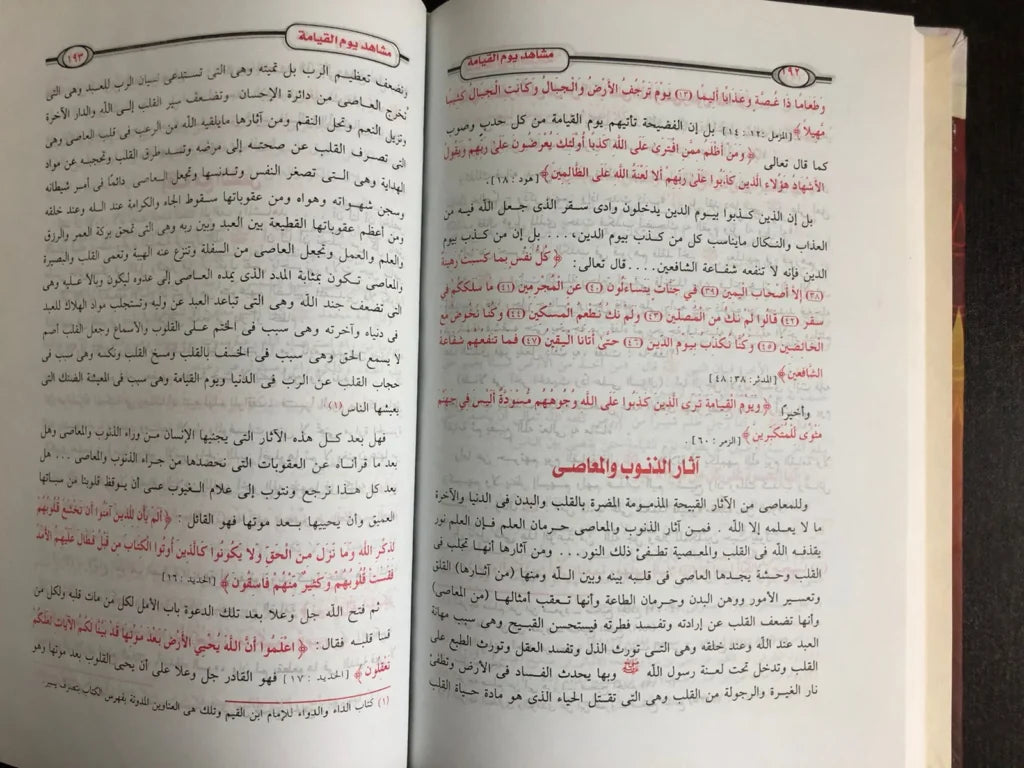 مشاهد يوم القيامة
١٩٢
وَطَعَامًا ذَا غُصَّةٍ وَعَذَابًا أَلِيمًا (١٣) يَوْمَ تَرْجُفُ الأَرْضُ وَالْجِبَالُ وَكَانَتِ الْجِبَالُ كَثِيبًا
مَّهِيلاً ﴾ [المزمل : ١٢ : ١٤] بل إن الفضيحة تأتيهم يوم القيامة من كل حدب وصوب
كما قال تعالى ﴿ وَمَنْ أَظْلَمُ مِمَّنِ افْتَرَىٰ عَلَى اللَّهِ كَذِبًا أُولَٰئِكَ يُعْرَضُونَ عَلَىٰ رَبِّهِمْ وَيَقُولُ
الأَشْهَادُ هَٰؤُلاءِ الَّذِينَ كَذَبُوا عَلَىٰ رَبِّهِمْ أَلا لَعْنَةُ اللَّهِ عَلَى الظَّالِمِينَ ﴾ [هود : ١٨] .
بل إن الذين كذبوا بيوم الدين يدخلون وادى سقر الذى جعل الله فيه من
العذاب والنكال مايناسب كل من كذب بيوم الدين .... بل إن من كذب بيوم
الدين فإنه لا تنفعه شفاعة الشافعين .... قال تعالى: ﴿ كُلُّ نَفْسٍ بِمَا كَسَبَتْ رَهِينَةٌ
(٣٨) إِلاَّ أَصْحَابَ الْيَمِينِ (٣٩) فِي جَنَّاتٍ يَتَسَاءَلُونَ (٤٠) عَنِ الْمُجْرِمِينَ (٤١) مَا سَلَكَكُمْ فِي
سَقَرَ (٤٢) قَالُوا لَمْ نَكُ مِنَ الْمُصَلِّينَ (٤٣) وَلَمْ نَكُ نُطْعِمُ الْمِسْكِينَ (٤٤) وَكُنَّا نَخُوضُ مَعَ
الْخَائِضِينَ (٤٥) وَكُنَّا نُكَذِّبُ بِيَوْمِ الدِّينِ (٤٦) حَتَّىٰ أَتَانَا الْيَقِينُ (٤٧) فَمَا تَنفَعُهُمْ شَفَاعَةُ
الشَّافِعِينَ ﴾ [المدثر: ٣٨ : ٤٨]
وأخيرًا ﴿ وَيَوْمَ الْقِيَامَةِ تَرَى الَّذِينَ كَذَبُوا عَلَى اللَّهِ وُجُوهُهُم مُّسْوَدَّةٌ أَلَيْسَ فِي جَهَنَّمَ
مَثْوًى لِّلْمُتَكَبِّرِينَ ﴾ [الزمر : ٦٠] .
آثار الذنوب والمعاصى
وللمعاصى من الآثار القبيحة المذمومة المضرة بالقلب والبدن فى الدنيا والآخرة
ما لا يعلمه إلا الله . فمن آثار الذنوب والمعاصى حرمان العلم فإن العلم نور
يقذفه الله فى القلب والمعصية تطفئ ذلك النور ... ومن آثارها أنها تجلب فى
القلب وحشة يجدها العاصى فى قلبه بينه وبين الله ومنها (من آثارها) القلق
وتعسير الأمور ووهن البدن وحرمان الطاعة وأنها تعقب أمثالها (من المعاصى)
وأنها تضعف القلب عن إرادته وتفسد فطرته فيستحسن القبيح وهى سبب مهانة
العبد عند الله وعند خلقه وهى التى تورث الذل وتفسد العقل وتورث الطبع على
القلب وتدخل تحت لعنة رسول الله ﷺ وبها يحدث الفساد فى الأرض وتطفئ
نار الغيرة والرجولة من القلب وهى التى تقتل الحياء الذى هو مادة حياة القلب
مشاهد يوم القيامة
١٩٣
وتضعف تعظيم الرب بل تميته وهى التى تستدعى نسيان الرب للعبد وهى التى
تُخرج العاصى من دائرة الإحسان وتضعف سير القلب إلى الله والدار الآخرة
وتزيل النعم وتحل النقم ومن آثارها مايلقيه الله من الرعب فى قلب العاصى وهى
التى تصرف القلب عن صحته إلى مرضه وتسد طرق القلب وتحجبه عن مواد
الهداية وهى التى تصغر النفس وتدنسها وتجعل العاصى دائمًا فى أسر شيطانه
وسجن شهواته وهواه ومن عقوباتها سقوط الجاه والكرامة عند الله وعند خلقه
ومن أعظم عقوباتها القطيعة بين العبد وبين ربه وهى التى تمحق بركة العمر والرزق
والعلم والعمل وتجعل العاصى من السفلة وتنزع عنه الهيبة وتعمى القلب والبصيرة
والمعاصى تكون بمثابة المدد الذى يمده العاصى إلى عدوه ليكون وبالا عليه وهى
التى تضعف جند الله وهى التى تباعد العبد عن وليه وتستجلب مواد الهلاك للعبد
فى دنياه وآخرته وهى سبب فى الختم على القلوب والأسماع وجعل القلب أصم
لا يسمع الحق وهى سبب فى الخسف بالقلب ومسخ القلب ونكسه وهى سبب فى
حجاب القلب عن الرب فى الدنيا ويوم القيامة وهى سبب فى المعيشة الضنك التى
يعيشها الناس(١)
فهل بعد كل هذه الآثار التى يجنيها الإنسان من وراء الذنوب والمعاصى وهل
بعد ما قرأناه عن العقوبات التى نحصدها من جراء الذنوب والمعاصى ... هل
بعد كل هذا نرجع ونتوب إلى علام الغيوب عسى أن يوقظ قلوبنا من سباتها
العميق وأن يحييها بعد موتها فهو القائل : ﴿ أَلَمْ يَأْنِ لِلَّذِينَ آمَنُوا أَن تَخْشَعَ قُلُوبُهُمْ
لِذِكْرِ اللَّهِ وَمَا نَزَلَ مِنَ الْحَقِّ وَلا يَكُونُوا كَالَّذِينَ أُوتُوا الْكِتَابَ مِن قَبْلُ فَطَالَ عَلَيْهِمُ الأَمَدُ
فَقَسَتْ قُلُوبُهُمْ وَكَثِيرٌ مِّنْهُمْ فَاسِقُونَ ﴾ [الحديد : ١٦]
ثم فتح الله جل وعلا بعد تلك الدعوة باب الأمل لكل من مات قلبه ولكل من
قسا قلبه فقال: ﴿ اعْلَمُوا أَنَّ اللَّهَ يُحْيِي الأَرْضَ بَعْدَ مَوْتِهَا قَدْ بَيَّنَّا لَكُمُ الآيَاتِ لَعَلَّكُمْ
تَعْقِلُونَ ﴾ [الحديد : ١٧] فهو القادر جل وعلا على أن يحيى القلوب بعد موتها وهو
(١) كتاب الداء والدواء للإمام ابن القيم وتلك هى العناوين المدونة بفهرس الكتاب بتصرف يسير.